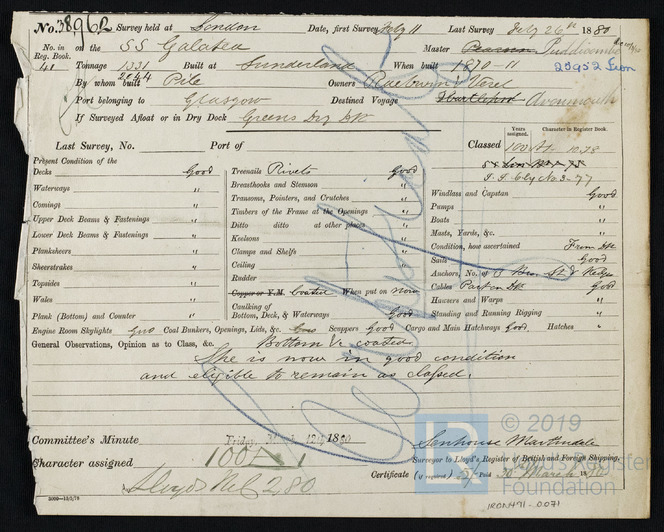 No. 38962 Survey held at London Date, first Survey Feby 11 Last Survey July 26th 1880
No. in Reg. Book. 41 on the SS Galatea Master Pearson Puddicombe
Tonnage 1331 2044 Built at Sunderland When built 1870-11 20952 Iron
By whom built Pile Owners Raeburn & Verel
Port belonging to Glasgow Destined Voyage Hartlepool Avonmouth
If Surveyed Afloat or in Dry Dock Greens Dry Dk
Last Survey, No. Port of Classed Years assigned. Character in Register Book. 100A1 10,78
S.S. Cly No 3-77
Present Condition of the
Decks Good Treenails Rivets Good
Waterways " Breasthooks and Stemson " Windlass and Capstan Good
Comings " Transoms, Pointers, and Crutches " Pumps "
Upper Deck Beams & Fastenings " Timbers of the Frame at the Openings " Boats "
Lower Deck Beams & Fastenings " Ditto ditto at other places " Masts, Yards, &c. "
Planksheers " Keelsons " Condition, how ascertained From Dk
Sheerstrakes " Clamps and Shelfs " Sails Good
Topsides " Ceiling " Anchors, No. of
Wales " Rudder " Cables Part on Dk Good
Copper or Y.M. Coated When put on Now Hawsers and Warps "
Plank (Bottom) and Counter " Caulking of Bottom, Deck, & Waterways Good Standing and Running Rigging "
Engine Room Skylights Good Coal Bunkers, Openings, Lids, &c. Good Scuppers Good Cargo and Main Hatchways Good, Hatches "
General Observations, Opinion as to Class, &c. Bottom &c coated
She is now in good condition
and eligible to remain as classed.
Committee's Minute Friday, 12th 1880
Character assigned 100A1
Lloyds MC 2.80
Senhouse Martindale
Surveyor to Lloyd's Register of British and Foreign Shipping.
Certificate (if required)
2000-13/2/79
IRON491-0071
© 2019
Lloyd's Register
Foundation